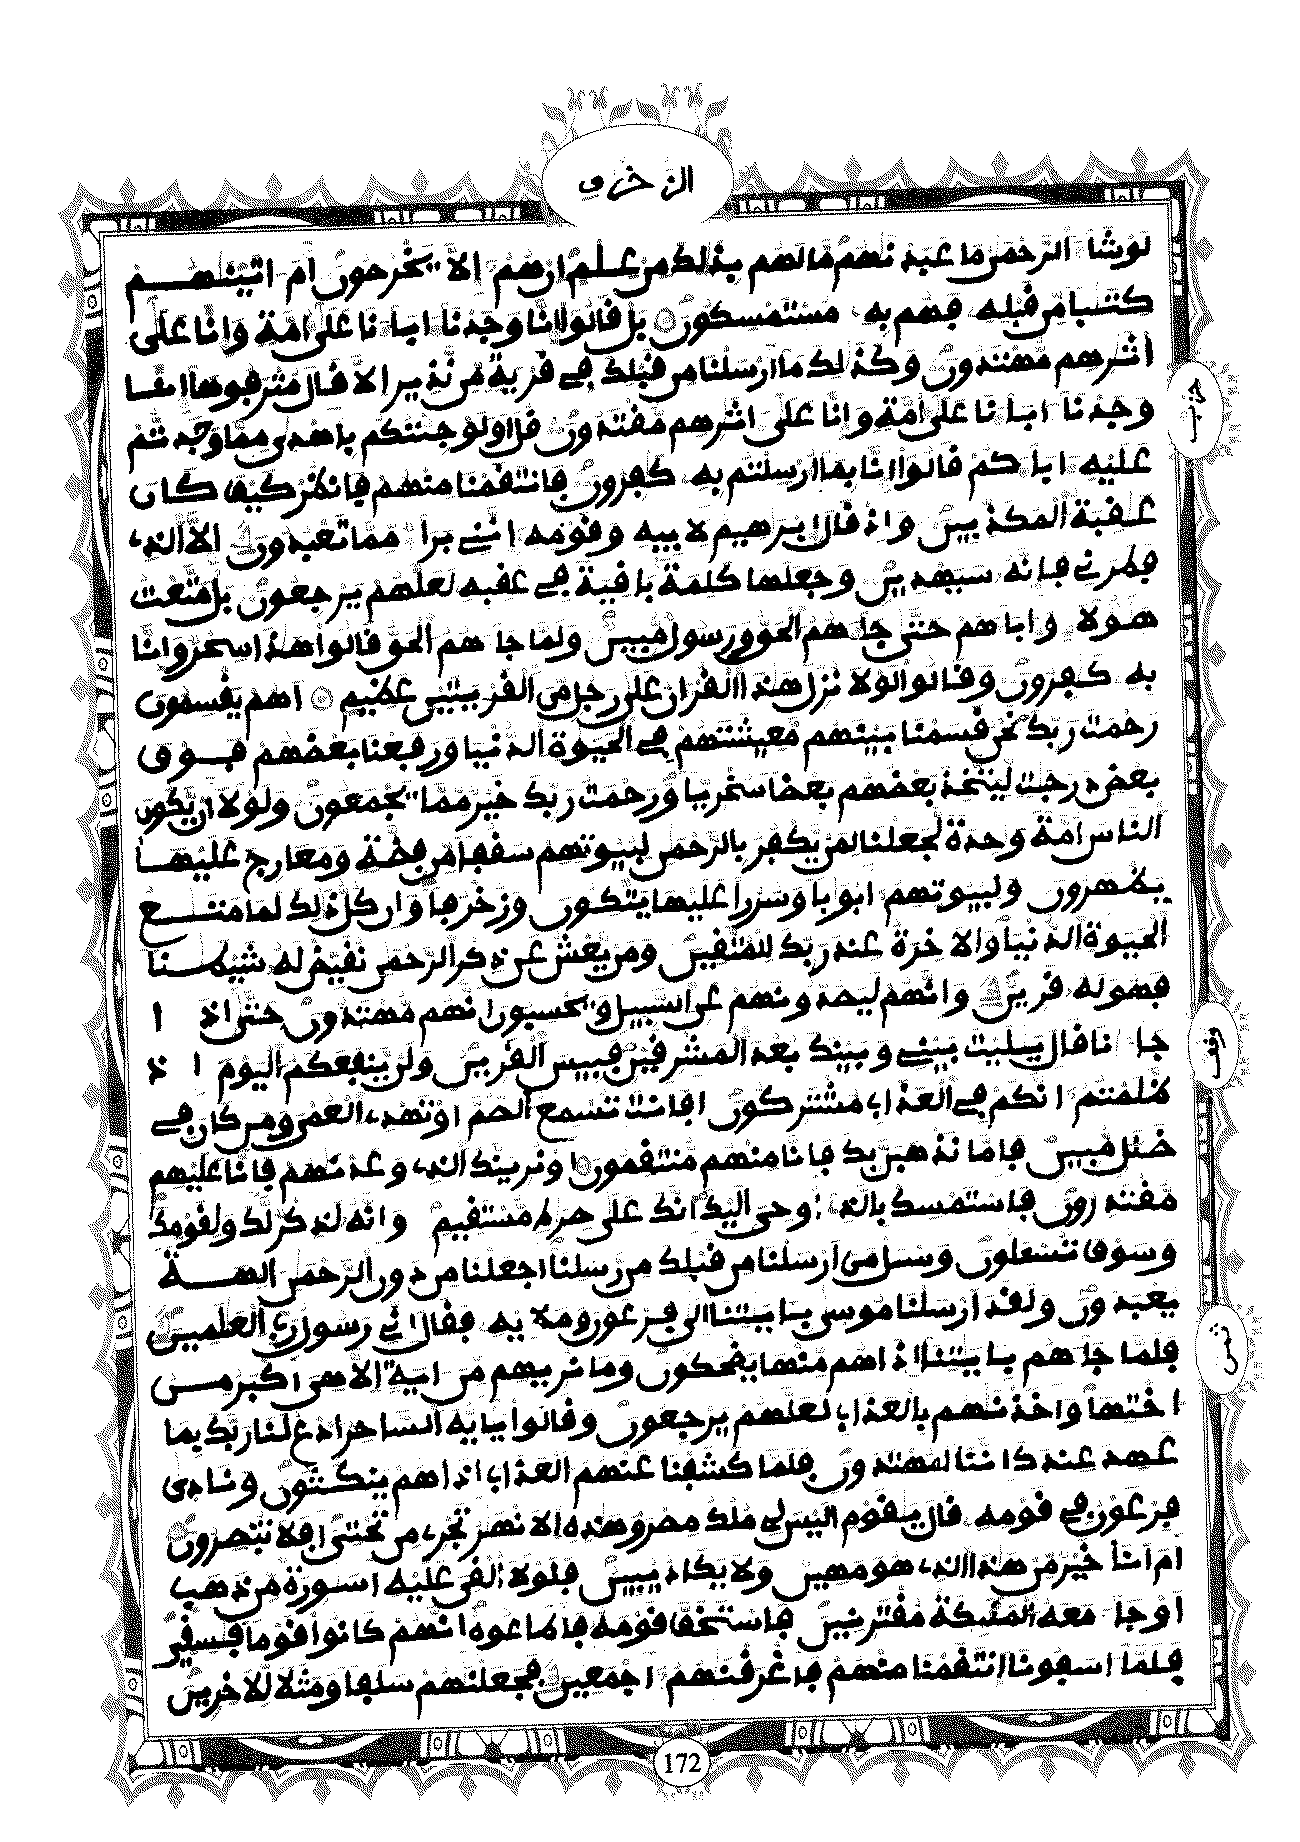 الزخرف
لوشا الرحمن ما عبدنهم مالهم بذلك من علم ان هم الا يخرصون ام اتينهم
كتبا من قبله فهم به مستمسكون بل قالوا انا وجدنا ابانا على امة وانا على
اثرهم مهتدون وكذلك ما ارسلنا من قبلك في قرية من نذير الا قال مترفوها انا
وجدنا ابانا على امة وانا على اثرهم مقتدون قل اولو جئتكم باهدى مما وجدتم
عليه اباكم قالوا انا بما ارسلتم به كفرون فانتقمنا منهم فانظر كيف كان
عقبة المكذبين واذ قال ابرهيم لابيه وقومه انني برا مما تعبدون الا الذي
فطرني فانه سيهدين وجعلها كلمة باقية في عقبه لعلهم يرجعون بل متعت
هولا واباهم حتى جاهم الحق ورسول مبين ولما جاهم الحق قالوا هذا سحر وانا
به كفرون وقالوا لولا نزل هذا القران على رجل من القريتين عظيم اهم يقسمون
رحمت ربك نحن قسمنا بينهم معيشتهم في الحيوة الدنيا ورفعنا بعضهم فوق
بعض درجت ليتخذ بعضهم بعضا سخريا ورحمت ربك خير مما يجمعون ولولا ان يكون
الناس امة وحدة لجعلنا لمن يكفر بالرحمن لبيوتهم سقفا من فضة ومعارج عليها
يظهرون ولبيوتهم ابوبا وسررا عليها يتكون وزخرفا وان كل ذلك لما متع
الحيوة الدنيا والاخرة عند ربك للمتقين ومن يعش عن ذكر الرحمن نقيض له شيطنا
فهو له قرين وانهم ليصدونهم عن السبيل ويحسبون انهم مهتدون حتى اذا
جانا قال يليت بيني وبينك بعد المشرقين فبيس القرين ولن ينفعكم اليوم اذ
ظلمتم انكم في العذاب مشتركون افانت تسمع الصم او تهدي العمي ومن كان في
ضلل مبين فاما نذهبن بك فانا منهم منتقمون او نرينك الذي وعدنهم فانا عليهم
مقتدرون فاستمسك بالذي اوحي اليك انك على صرط مستقيم وانه لذكر لك ولقومك
وسوف تسلون وسل من ارسلنا من قبلك من رسلنا اجعلنا من دون الرحمن الهة
يعبدون ولقد ارسلنا موسى بايتنا الى فرعون وملايه فقال اني رسول رب العلمين
فلما جاهم بايتنا اذا هم منها يضحكون وما نريهم من اية الا هي اكبر من
اختها واخذنهم بالعذاب لعلهم يرجعون وقالوا يايه الساحر ادع لنا ربك بما
عهد عندك اننا لمهتدون فلما كشفنا عنهم العذاب اذا هم ينكثون ونادى
فرعون في قومه قال يقوم اليس لي ملك مصر وهذه الانهر تجري من تحتي افلا تبصرون
ام انا خير من هذا الذي هو مهين ولا يكاد يبين فلولا القي عليه اسورة من ذهب
او جا معه الملئكة مقترنين فاستخف قومه فاطاعوه انهم كانوا قوما فسقين
فلما اسفونا انتقمنا منهم فاغرقنهم اجمعين فجعلنهم سلفا ومثلا للاخرين
حزب
ثمن
172